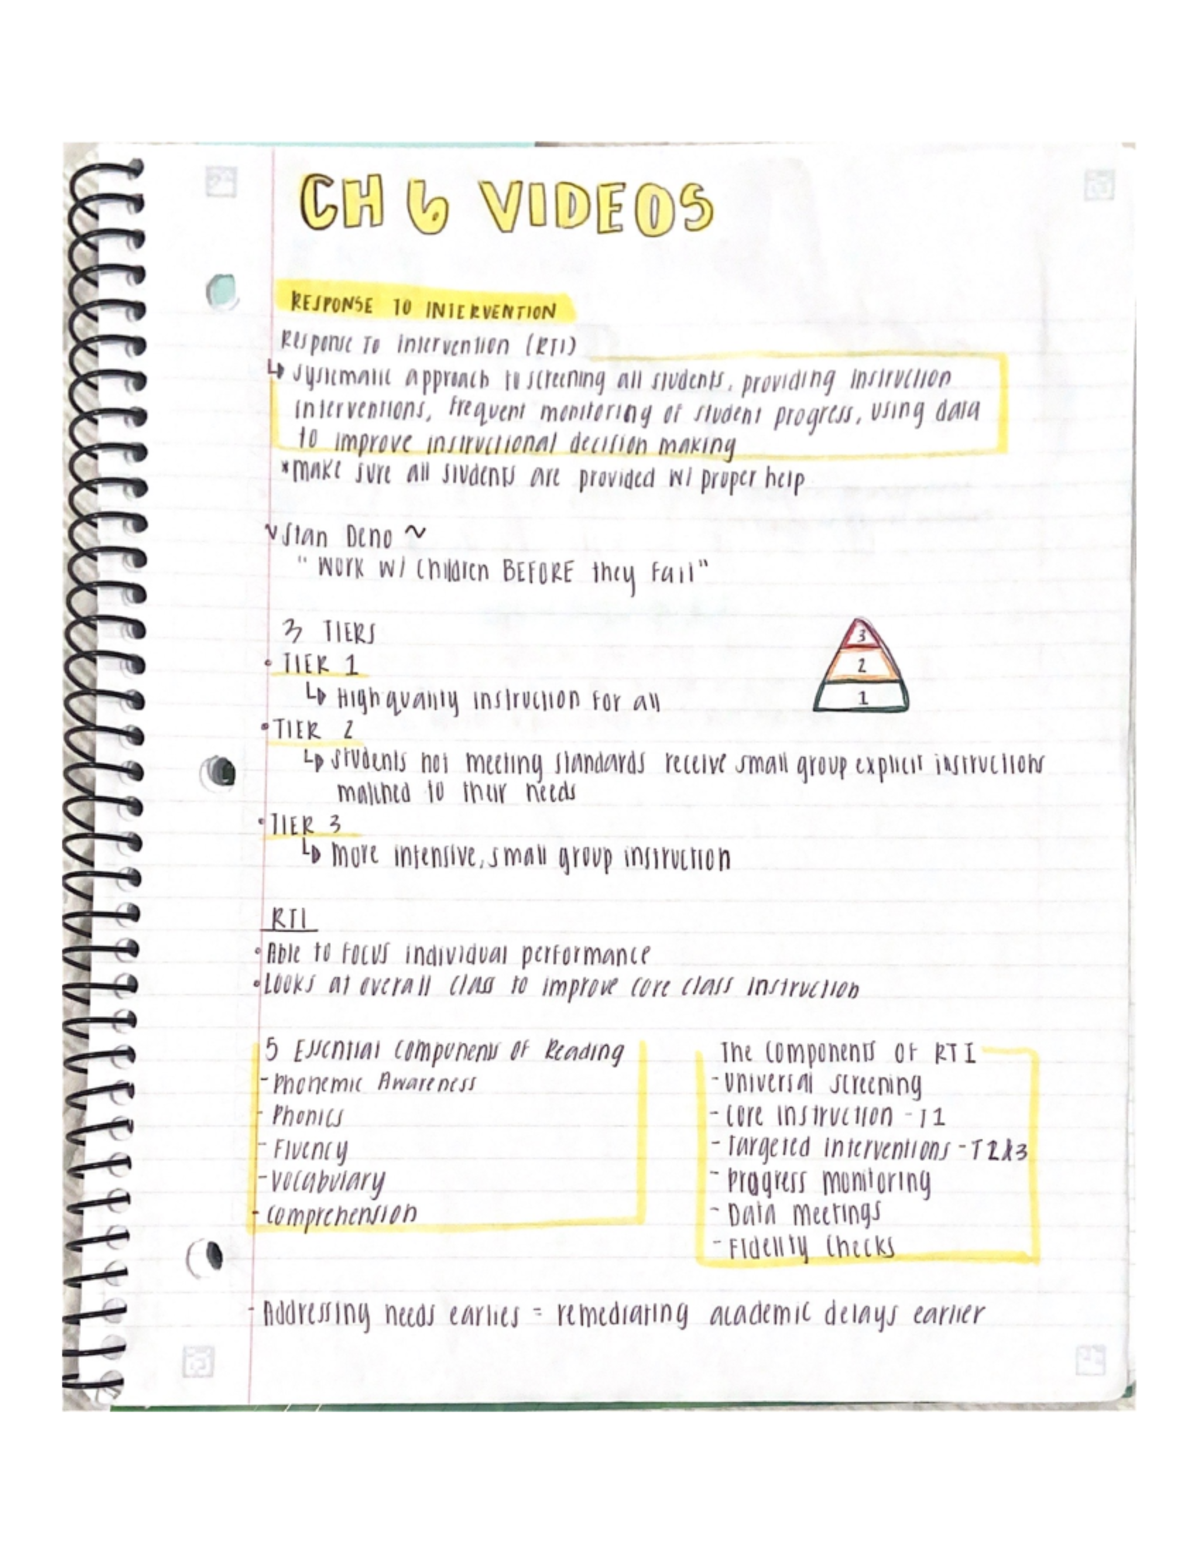 CH 6 VIDEOS
RESPONSE TO INTERVENTION
Response To Intervention (RTI)
↳ systematic approach to screening all students, providing instruction
interventions, frequent monitoring of student progress, using data
to improve instructional decision making
*make sure all students are provided w/ proper help
~Stan Deno ~
"Work w/ children BEFORE they fail"
3 TIERS
3
• TIER 1
2
↳ High quality instruction for all
1
• TIER 2
↳ students not meeting standards receive small group explicit instructions
matched to their needs
• TIER 3
↳ more intensive, small group instruction
RTI
• Able to focus individual performance
• Looks at overall class to improve core class instruction
5 Essential Components of Reading
- Phonemic Awareness
- Phonics
- Fluency
- Vocabulary
- comprehension
The Components of RTI
- Universal screening
- Core instruction - T1
- Targeted interventions - T2&3
- Progress monitoring
- Data Meetings
- Fidelity Checks
- Addressing needs earlies = remediating academic delays earlier